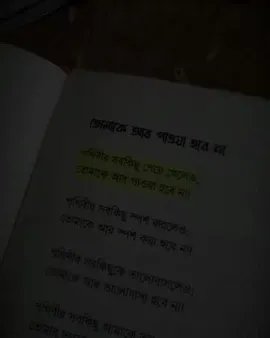 তোমাকে আর পাওয়া হবে না
পৃথিবীর সবকিছু পেয়ে গেলেও,
তোমাকে আর পাওয়া হবে না।
পৃথিবীর সবকিছু স্পর্শ করলেও,
তোমাকে আর স্পর্শ করা হবে না।
পৃথিবীর সবকিছুকে ভালোবাসলেও,
তোমাকে আর ভালোবাসা হবে না।
পৃথিবীর সবকিছু আমাকে
তোমার